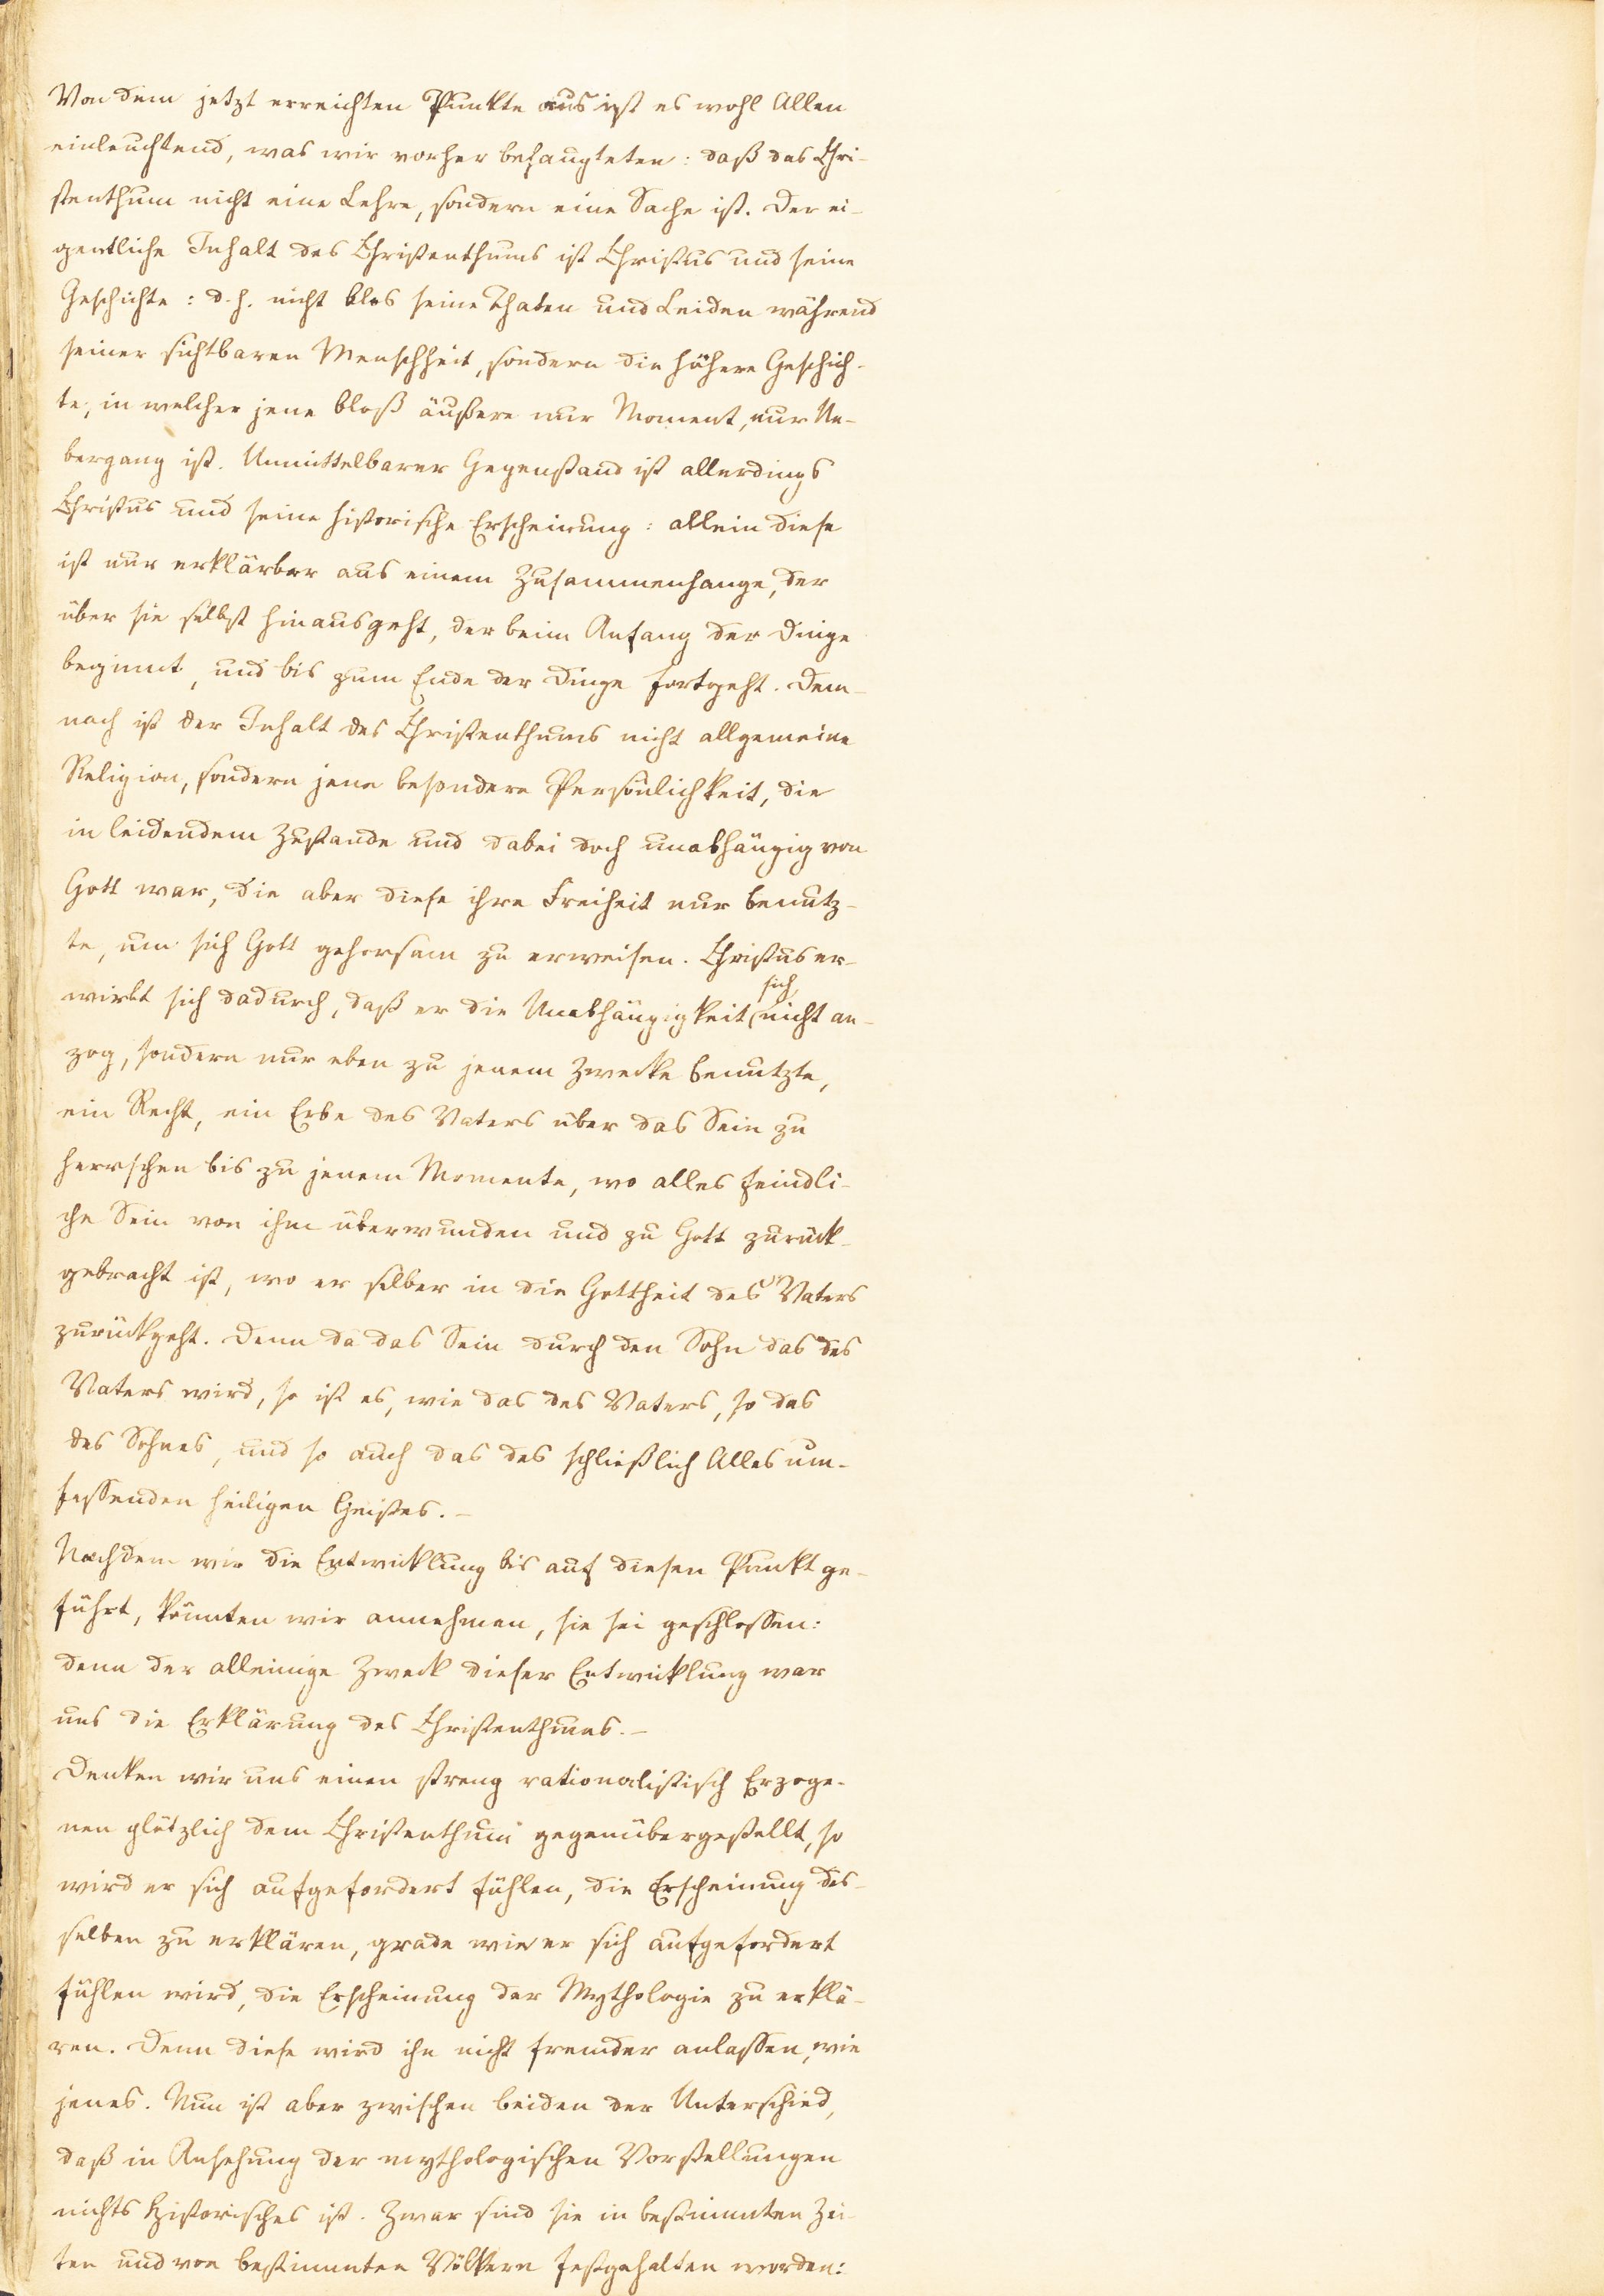 Von dem jetzt erreichten Punkte aus ist es wohl Allen
einleuchtend, was wir vorher behaupteten: daß das Chri-
stenthum nicht eine Lehre, sondern eine Sache ist. Der ei-
gentliche Inhalt des Christenthums ist Christus und seine
Geschichte: d. h. nicht blos seine Thaten und Leiden während
seiner sichtbaren Menschheit, sondern die höhere Geschich-
te, in welcher jene bloß äußere nur Moment, nur Ue-
bergang ist. Unmittelbarer Gegenstand ist allerdings
Christus und seine historische Erscheinung: allein diese
ist nur erklärbar aus einem Zusammenhange, der
über sie selbst hinausgeht, der beim Anfang der Dinge
beginnt, und bis zum Ende der Dinge fortgeht. Dem-
nach ist der Inhalt des Christenthums nicht allgemeine
Religion, sondern jene besondere Persönlichkeit, die
in leidendem Zustande und dabei doch unabhängig von
Gott war, die aber diese ihre Freiheit nur benutz-
te, um sich Gott gehorsam zu erweisen. Christus er-
wirbt sich dadurch, daß er die Unabhängigkeit sich nicht an-
zog, sondern nur eben zu jenem Zwecke benutzte,
ein Recht, ein Erbe des Vaters über das Sein zu
herrschen bis zu jenem Momente, wo alles feindli-
che Sein von ihm überwunden und zu Gott zurück-
gebracht ist, wo er selber in die Gottheit des Vaters
zurückgeht. Denn da das Sein durch den Sohn das des
Vaters wird, so ist es, wie das des Vaters, so das
des Sohnes, und so auch das des schließlich Alles um-
fassenden heiligen Geistes. –
Nachdem wir die Entwicklung bis auf diesen Punkt ge-
führt, könnten wir annehmen, sie sei geschlossen:
denn der alleinige Zweck dieser Entwicklung war
uns die Erklärung des Christenthums. –
Denken wir uns einen streng rationalistisch Erzoge-
nen plötzlich dem Christenthum gegenübergestellt, so
wird er sich aufgefordert fühlen, die Erscheinung des-
selben zu erklären, grade wie er sich aufgefordert
fühlen wird, die Erscheinung der Mythologie zu erklä-
ren. Denn diese wird ihn nicht fremder anlassen, wie
jenes. Nun ist aber zwischen beiden der Unterschied,
daß in Ansehung der mythologischen Vorstellungen
nichts Historisches ist. Zwar sind sie in bestimmten Zei-
ten und von bestimmten Völkern festgehalten worden: